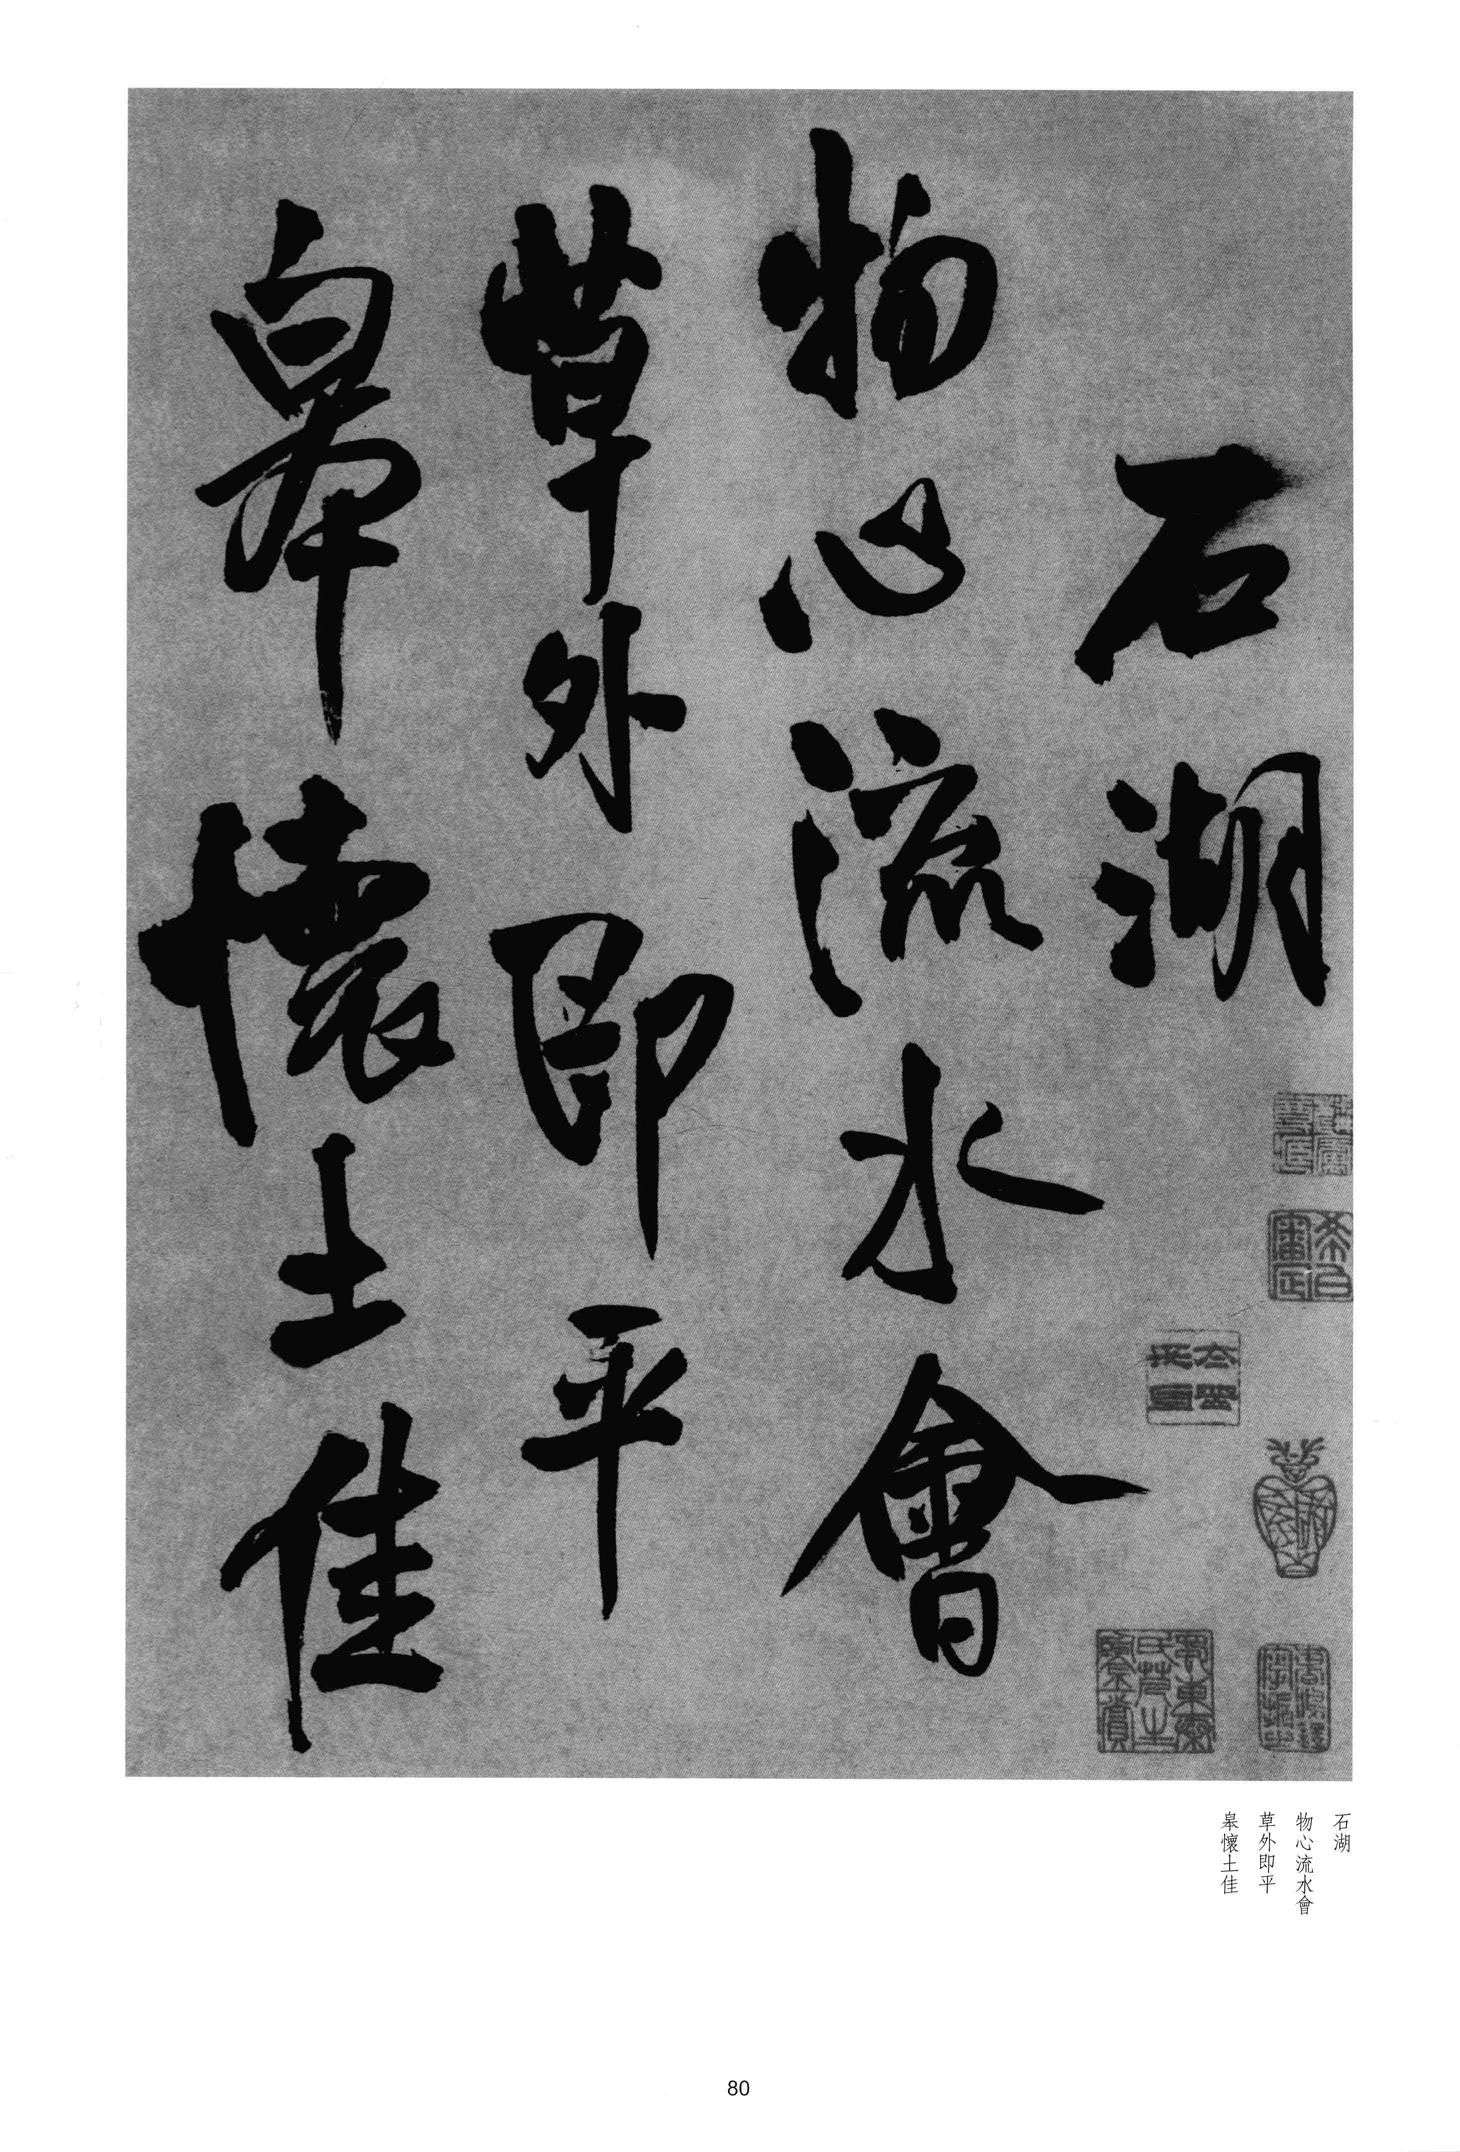 石湖
物心流水會
草外即平
皋懷土佳
石湖
物心流水會
草外即平
皋懷土佳
80